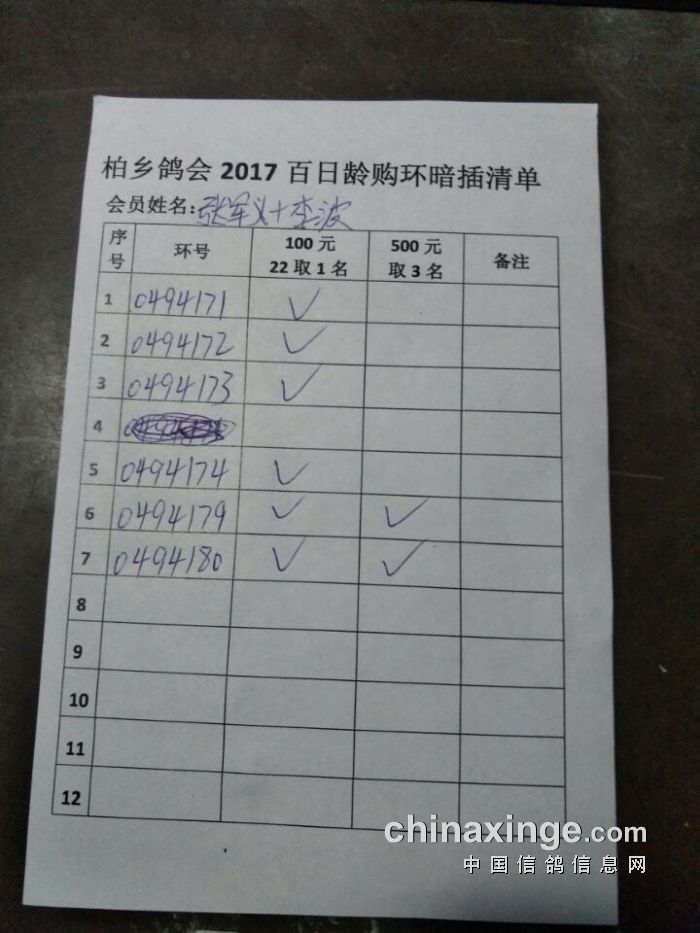 柏乡鸽会 2017 百日龄购环暗插清单
会员姓名：张军义+李波
序号 环号 100 元 22 取 1 名 500 元 取 3 名 备注
1 0494171 ✓
2 0494172 ✓
3 0494173 ✓
4
5 0494174 ✓
6 0494179 ✓ ✓
7 0494180 ✓ ✓
8
9
10
11
12
chinaxinge.com
中国信鸽信息网